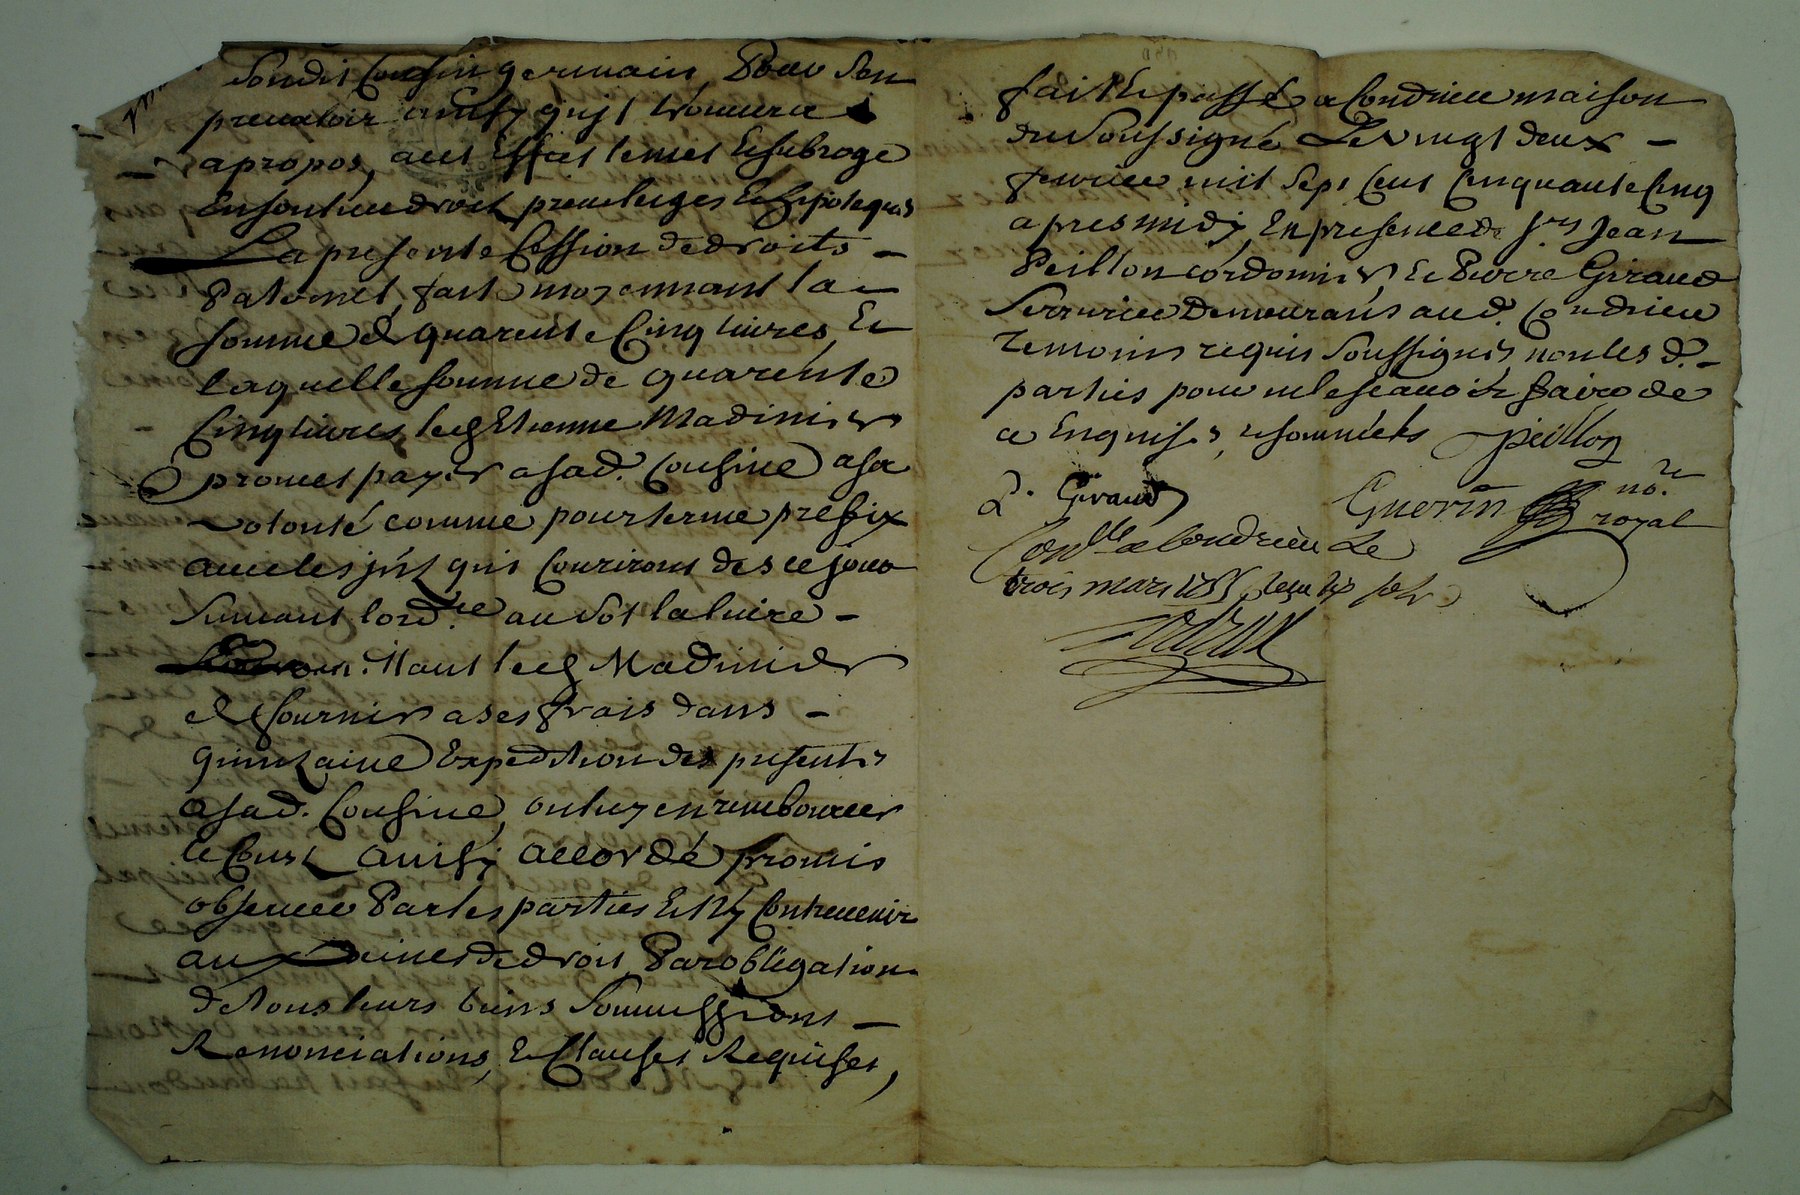 Sondit Cousin germain Pour sen
prevaloir ainsy quil trouvera
apropos, a cet Effet le met Et subroge
En son lieu droit privileges Et hipoteques
La presente Cession de droits
Paternel, fait moyennant la
somme de quarente Cinq livres, Et
laquelle somme de quarente
Cinq livres led Etienne Madinier
promet payer a sad. Cousine a sa
volonté comme pour terme prefix
avec les jnts qui Couriront des ce jour
suivant lord.re au sol la livre
led Madinier
de fournir a ses frais dans
quinzaine Expedition des presentes
a sad. Cousine, ou luy en rembourcer
le Coust ainsy accordé promis
observer Par les parties Et Ny Contrevenir
aux peines de droit Par obligation
de tous leurs biens Soumissions
Renonciations, Et Clauses Requises,
fait Et passé a Condrieu maison
du Soussigné Le vingt deux
fevrier mil Sept Cent Cinquante Cinq
apres midy, En presence de Srs Jean
Peillon cordonnier, Et Pierre Giraud
Serrurier Demeurants aud. Condrieu
Temoins requis Soussignés non les d.
parties pour ne le scavoir faire de
ce Enquises, et sommées Peillon
P. Giraud Guerin no.re
royal
Con.lle a Condrieu Le
trois mars 1755 Reçu six sols